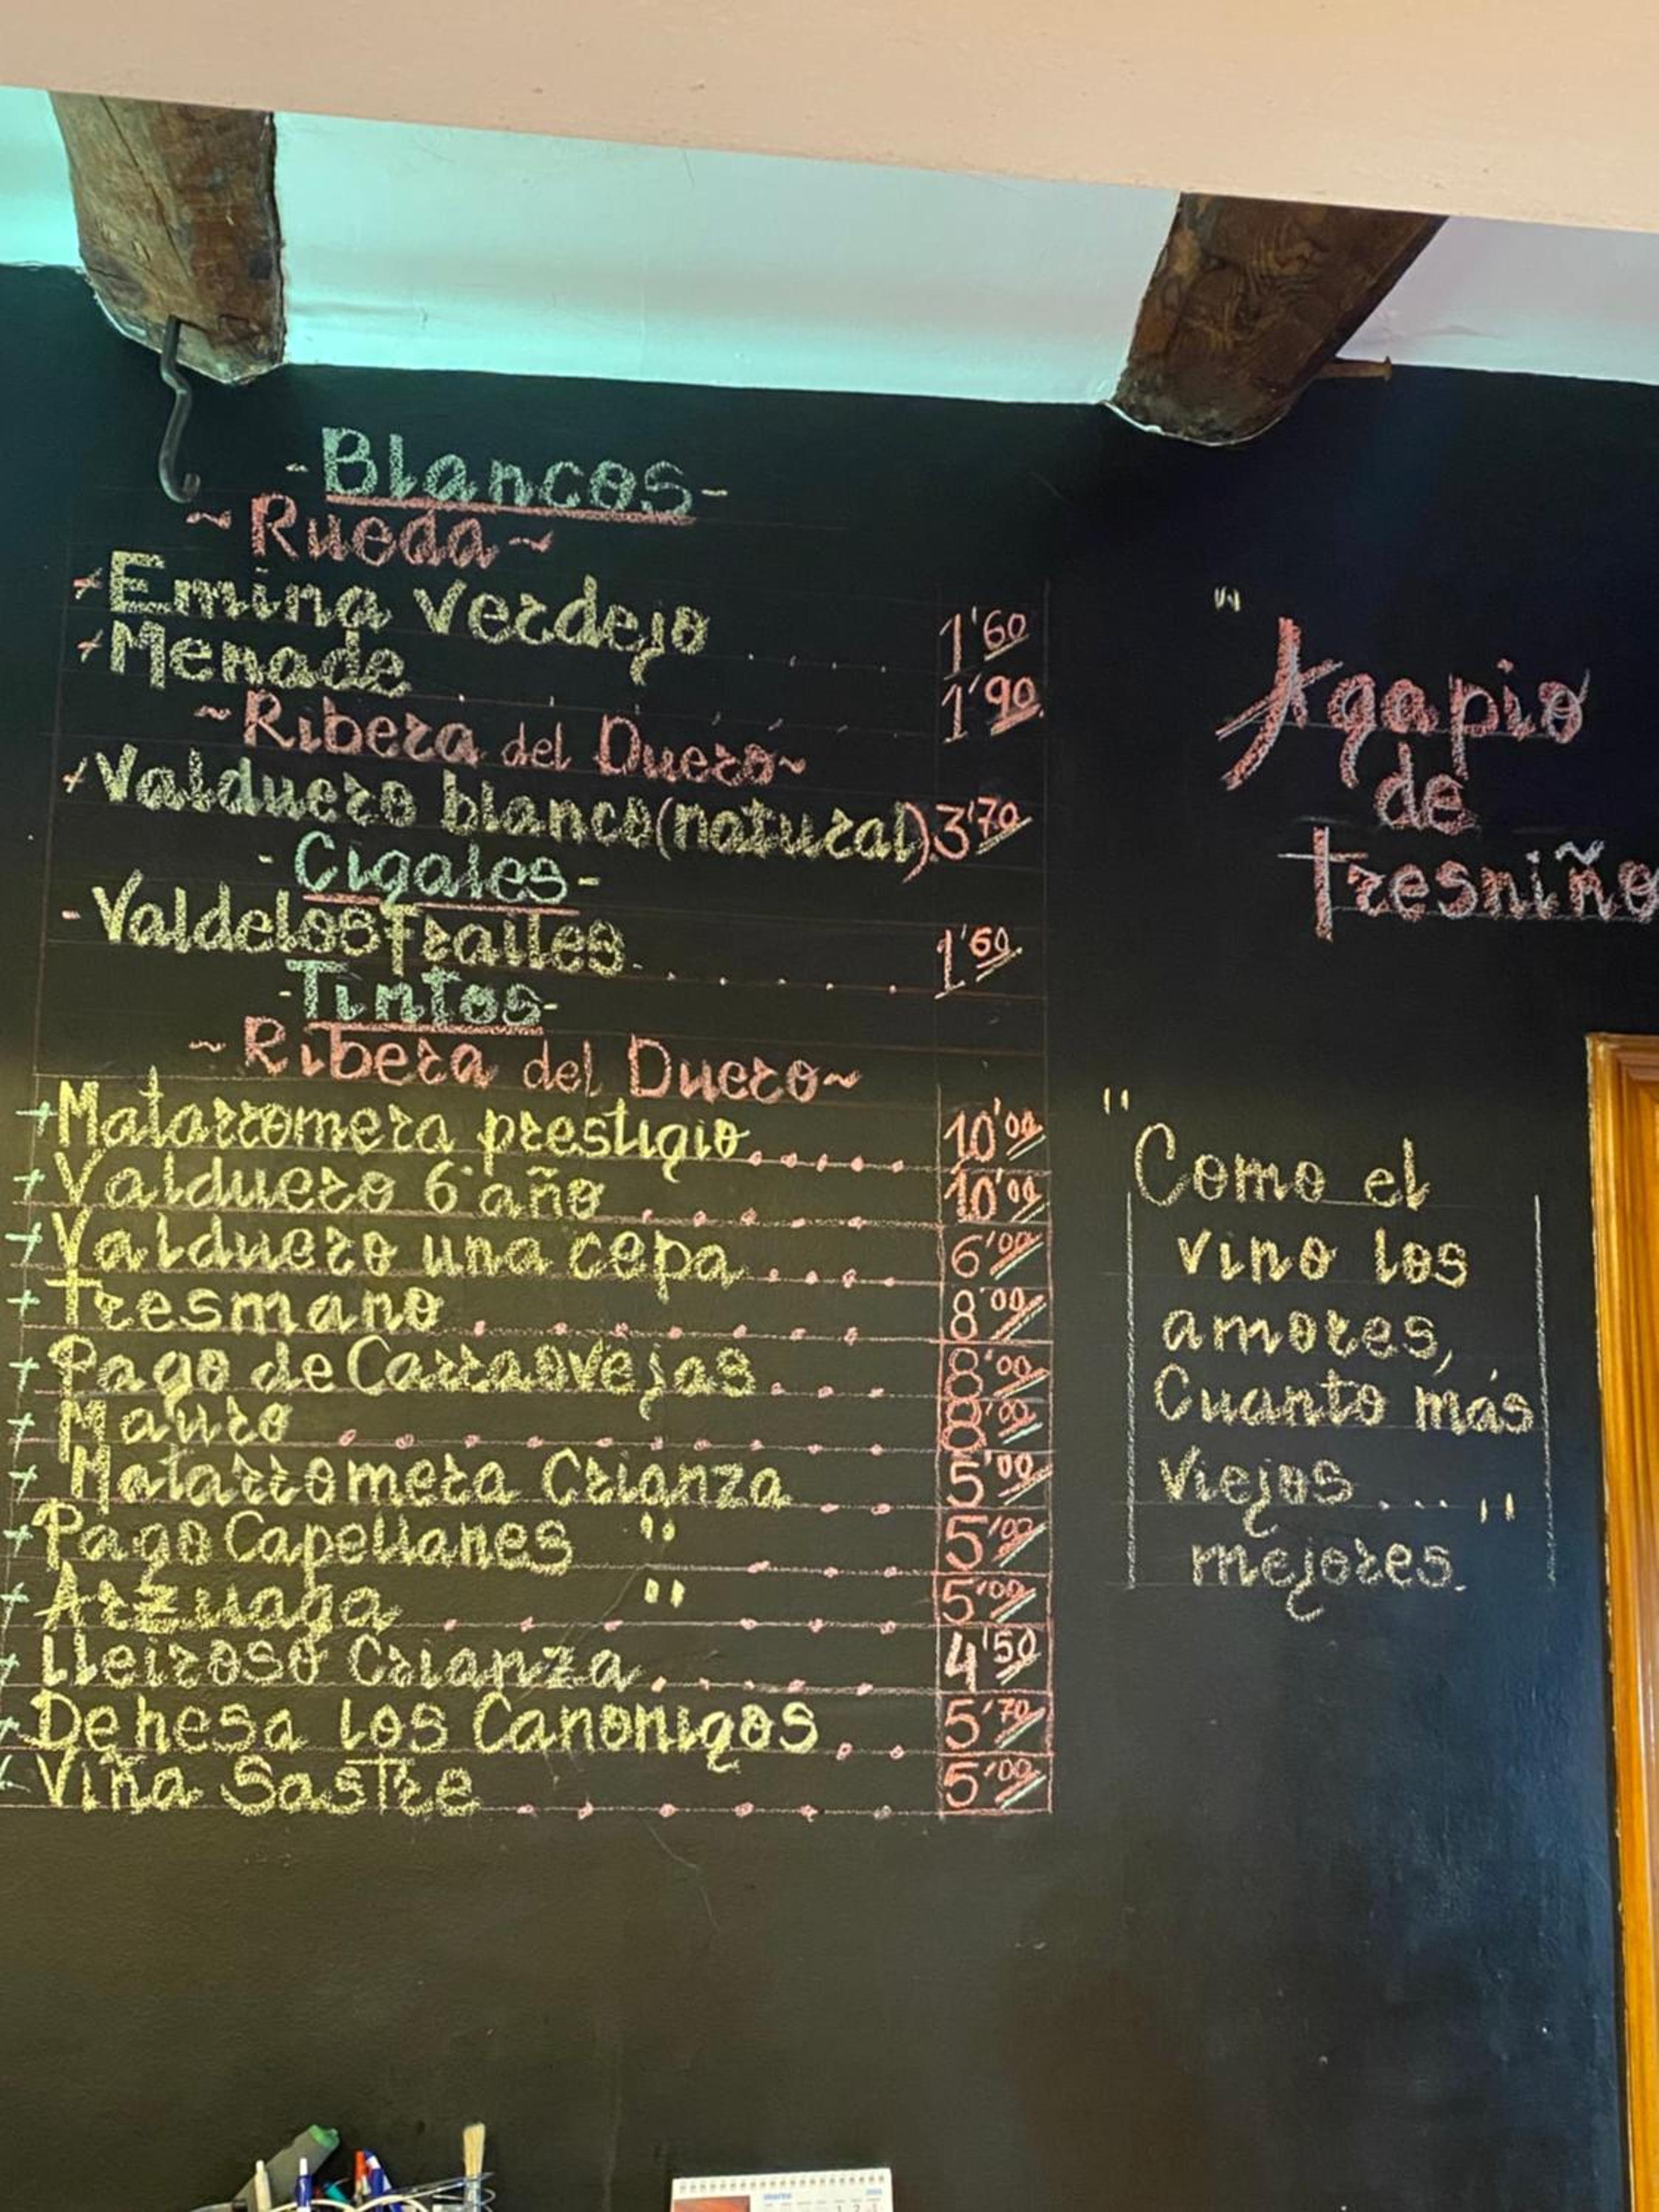 -Blancos-
~Rueda~
+Emina verdejo . . . . 1'60
+Menade . . . . . . . 1'90
~Ribera del Duero~
+Valduero blanco(natural). 3'70
-Cigales-
-Valdelosfrailes. . . . . . 1'60
-Tintos-
~Ribera del Duero~
+Matarromera prestigio...... 10'00
+Valduero 6º año . . . . . 10'00
+Valduero una cepa . . . . . 6'00
+Tresmano . . . . . . . 8'00
+Pago de Carraovejas. . . 8'00
+Mauro . . . . . . . . . . 8'00
+Matarromera Crianza . . 5'00
+Pago Capellanes " . . . 5'00
+Arzuaga . . . " . . . 5'00
+Lleiroso Crianza. . . . . 4'50
+Dehesa los Canonigos . . 5'70
+Viña Sastre . . . . . . 5'00
"Agapio
de
Tresniño
"Como el
vino los
amores,
Cuanto más
viejos ... "
mejores.